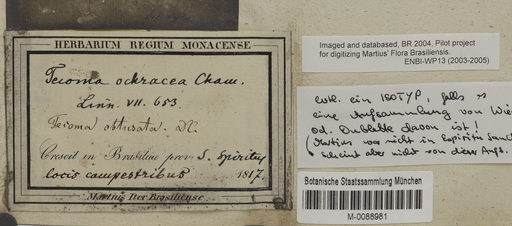 HERBARIUM REGIUM MONACENSE
Tecoma ochracea Cham.
Linn. VII. 653.
Tecoma obtusata. DC.
Crescit in Brasiliae prov. S. Spiritus
locis campestribus 1817.
Martius Iter Brasiliense.
Imaged and databased, BR 2004, Pilot project
for digitizing Martius' Flora Brasiliensis.
ENBI-WP13 (2003-2005)
evtl. ein ISOTYP, falls es
eine Aufsammlung von Wied
od. Dublette davon ist!
(Martius war nicht in Espiritu Santo
scheint aber nicht von dieser Aufs.
Botanische Staatssammlung München
M-0088981